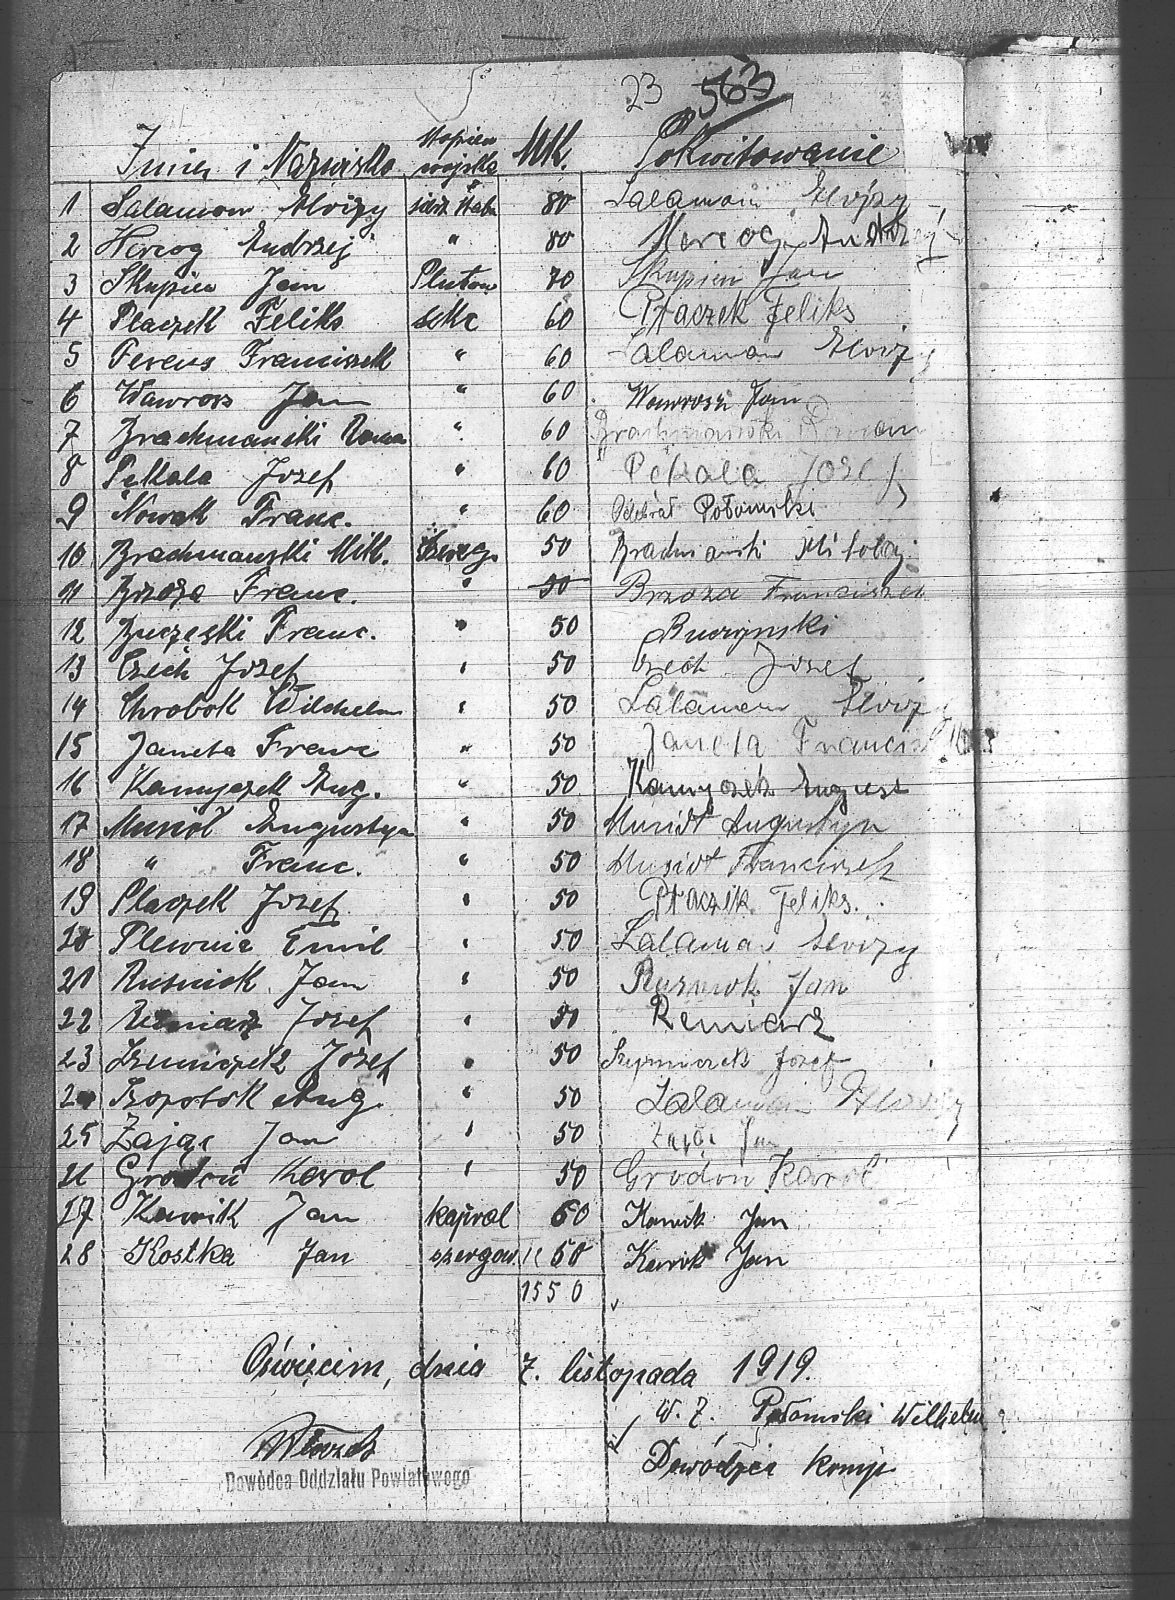 23 563
Imię i Nazwisko Stopień wojska Mk. Pokwitowanie
1 Salamon Alojzy 80 Salamon Alojzy
2 Hercog Andrzej " 80 Hercog Andrzej
3 Skupień Jan Pluton 70 Skupień Jan
4 Placzek Feliks sekc 60 Ptaczek Feliks
5 Franciszek " 60 Salamon Alojzy
6 Wawrosz Jan " 60 Wawrosz Jan
7 Brachmański Roman " 60 Brachmański Roman
8 Pękala Józef " 60 Pękala Józef
9 Nowak Franc. " 60 Odebrał Połomski
10 Brachmański Mik. Szereg. 50 Brachmański Mikołaj
11 Brzoza Franc. " 50 Brzoza Franciszek
12 Franc. " 50 Buczynski
13 Czech Józef " 50 Czech Józef
14 Chrobok Wilhelm " 50 Salamon Alojzy
15 Janeta Franc " 50 Janeta Francisz
16 Kamyczek Aug. " 50 Kamyczek August
17 Musioł Augustyn " 50 Musioł Augustyn
18 " Franc. " 50 Musioł Franciszek
19 Placzek Józef " 50 Ptaczek Feliks.
20 Plewnia Emil " 50 Salamon Alojzy
21 Rusniok Jan " 50 Rusniok Jan
22 Remiarz Józef " 50 Remiarz
23 Józef " 50 Józef
24 Szopotok Aug. " 50 Salamon Alojzy
25 Zając Jan " 50 Zając Jan
26 Grodoń Karol " 50 Grodoń Karol
27 Kawik Jan kapral 60 Kawik Jan
28 Kostka Jan szergow. 50 Kawik Jan
1550
Oświęcim, dnia 7. listopada 1919.
W. Z. Połomski Wilhelm
Dowódzca komp
Dowódca Oddziału Powiatowego